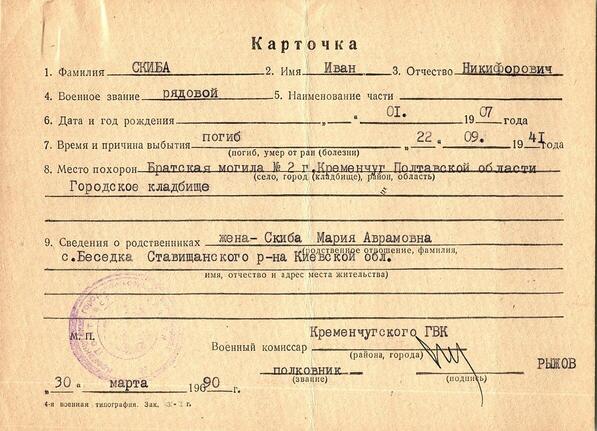 Карточка
1. Фамилия СКИБА 2. Имя Иван 3. Отчество Никифорович
4. Военное звание рядовой 5. Наименование части
6. Дата и год рождения „ “ 01. 1907 года
7. Время и причина выбытия погиб „ 22 “ 09. 1941 года
(погиб, умер от ран (болезни)
8. Место похорон Братская могила № 2 г.Кременчуг Полтавской области
(село, город (кладбище), район, область)
Городское кладбище
9. Сведения о родственниках жена- Скиба Мария Аврамовна
(родственное отношение, фамилия,
с.Беседка Ставищанского р-на Киевской обл.
имя, отчество и адрес места жительства)
М. П.
Кременчугского ГВК
Военный комиссар
(района, города)
полковник РЫЖОВ
(звание) (подпись)
„ 30 “ марта 19690 г.
4-я военная типография. Зак.